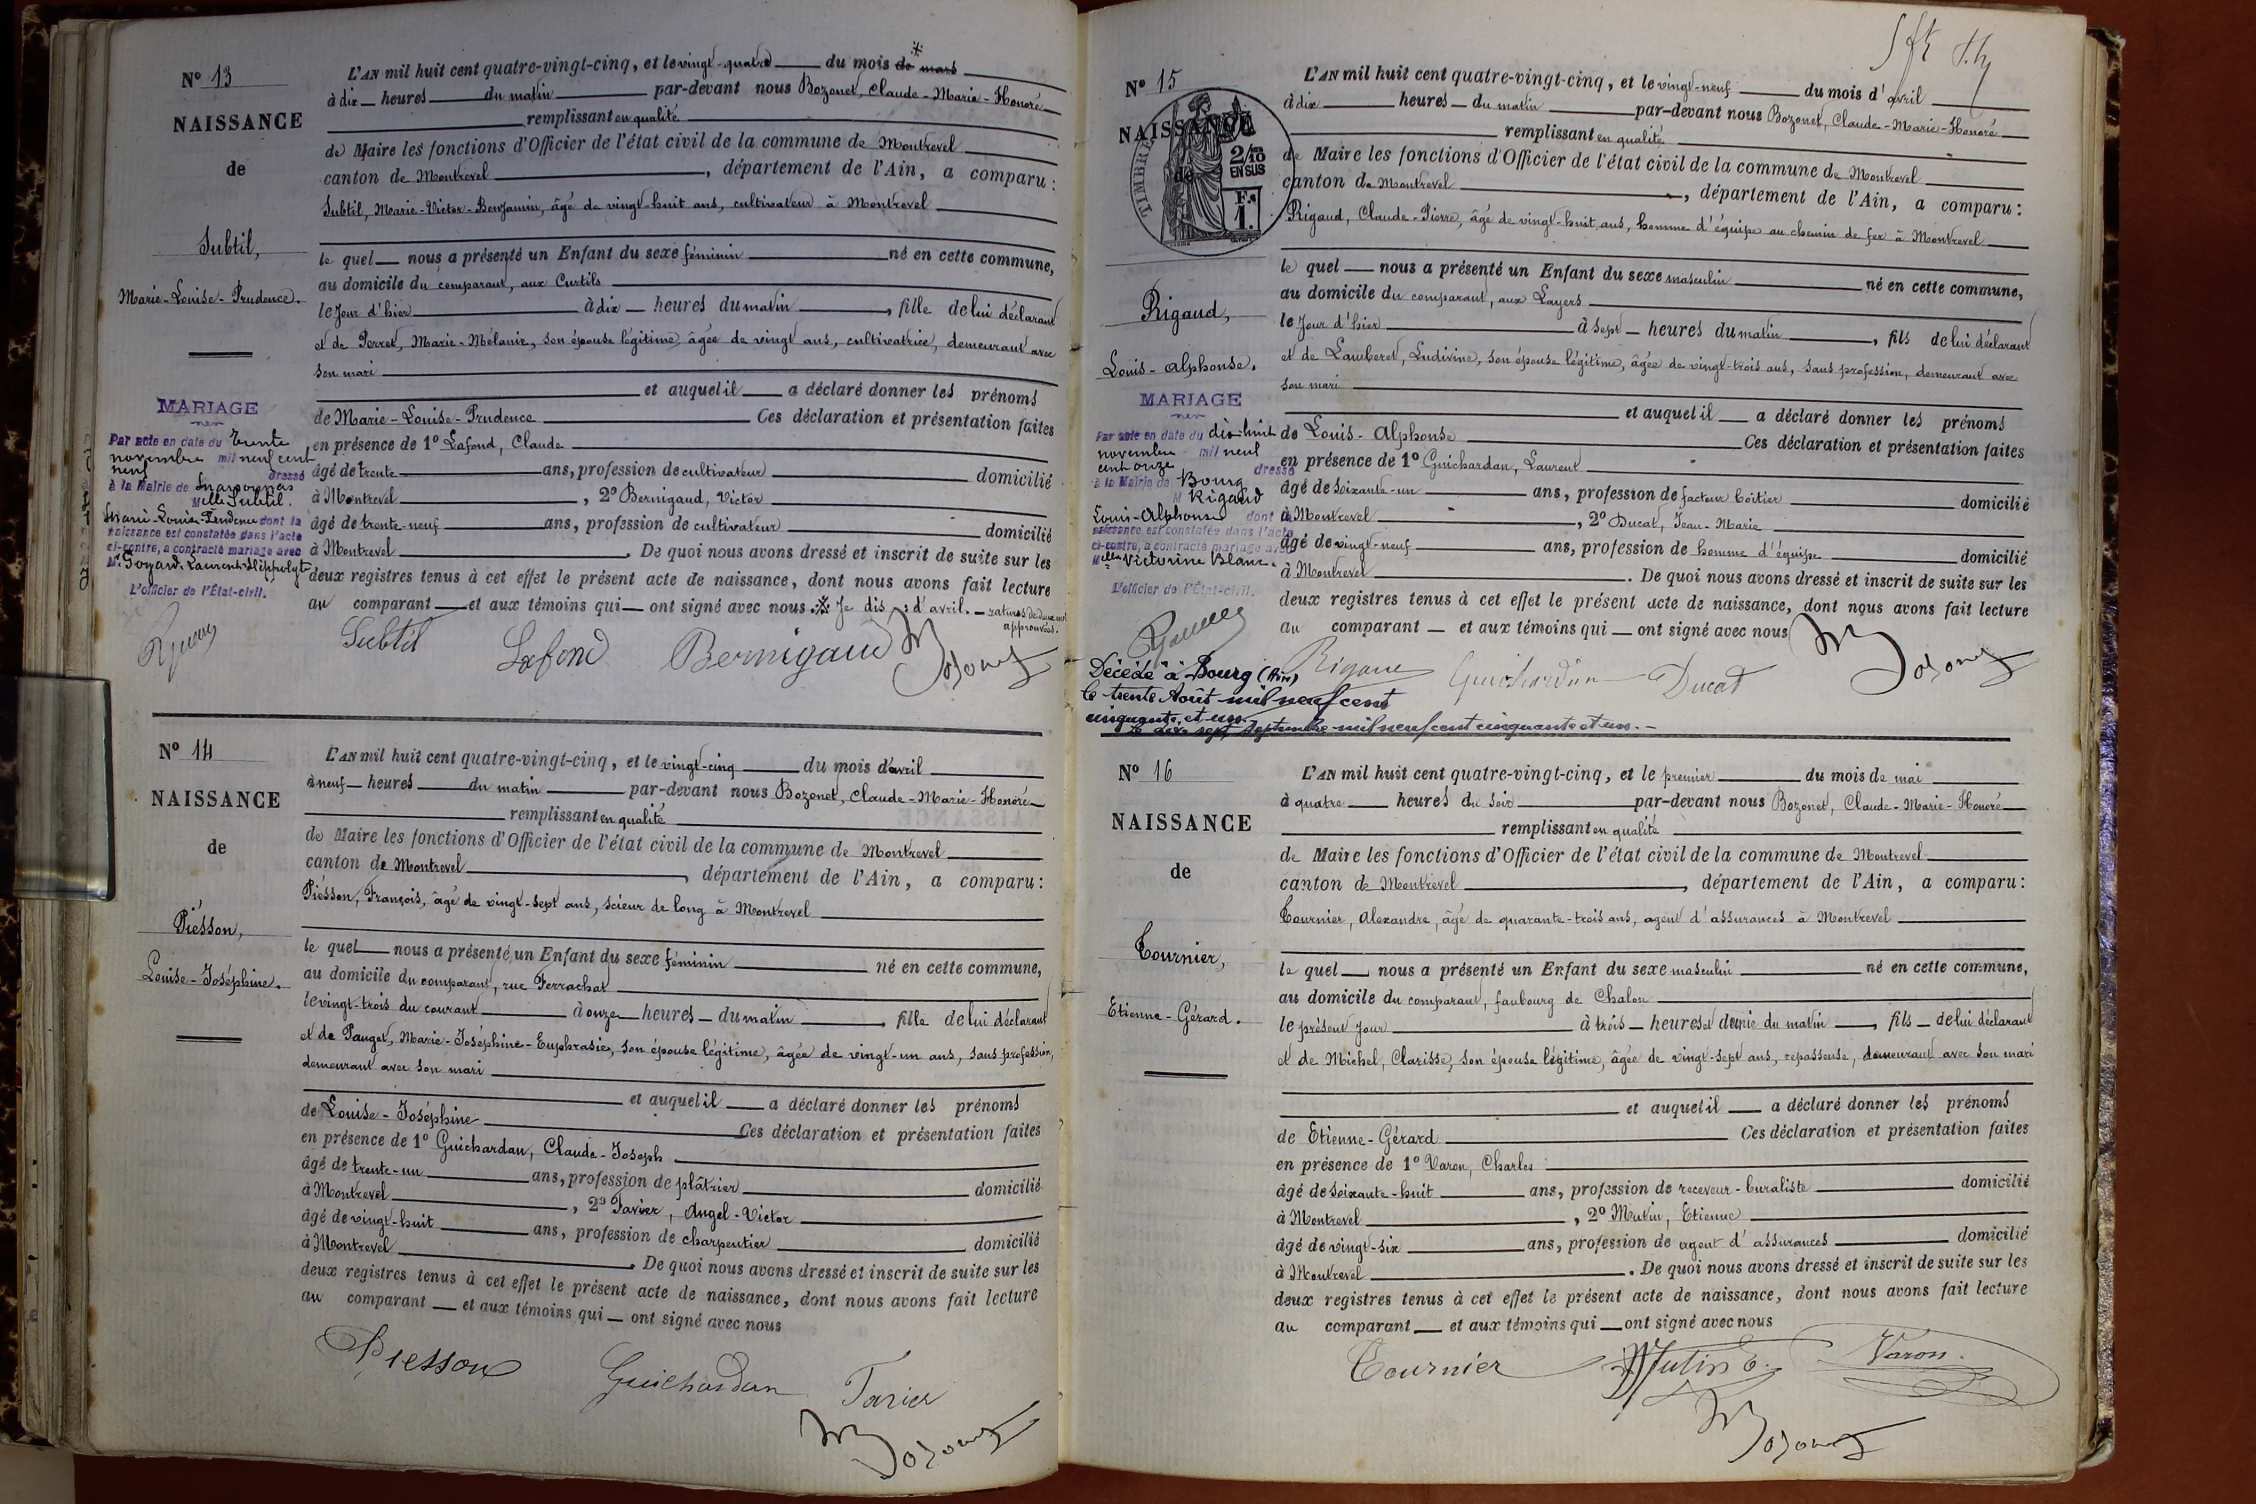 N° 13
NAISSANCE
de
Subtil,
Marie-Louise-Prudence.
MARIAGE
Par acte en date du trente
novembre mil neuf cent
neuf dressé
à la Mairie de
Mlle Subtil.
Marie-Louise-Prudence dont la
naissance est constatée dans l'acte
ci-contre, a contracté mariage avec
Mr Goyard, Laurent-Hippolyte
L'officier de l'État-civil.
L'AN mil huit cent quatre-vingt-cinq, et le vingt-quatre du mois de mars *
à dix heures du matin par-devant nous Bozonet, Claude-Marie-Honoré
remplissant en qualité
de Maire les fonctions d'Officier de l'état civil de la commune de Montrevel
canton de Montrevel, département de l'Ain, a comparu :
Subtil, Marie-Victor-Benjamin, âgé de vingt-huit ans, cultivateur à Montrevel
le quel nous a présenté un Enfant du sexe féminin né en cette commune,
au domicile du comparant, aux Curtils
le jour d'hier à dix heures du matin, fille de lui déclarant
et de Perret, Marie-Mélanie, son épouse légitime, âgée de vingt ans, cultivatrice, demeurant avec
son mari
et auquel il a déclaré donner les prénoms
de Marie-Louise-Prudence Ces déclaration et présentation faites
en présence de 1° Lafond, Claude
âgé de trente ans, profession de cultivateur domicilié
à Montrevel, 2° Bernigaud, Victor
âgé de trente-neuf ans, profession de cultivateur domicilié
à Montrevel. De quoi nous avons dressé et inscrit de suite sur les
deux registres tenus à cet effet le présent acte de naissance, dont nous avons fait lecture
au comparant et aux témoins qui ont signé avec nous. * Je dis : d'avril. - ratures de deux mots
approuvées.
Subtil Lafond Bernigaud Bozonet
N° 14
NAISSANCE
de
Piésson,
Louise-Joséphine.
L'AN mil huit cent quatre-vingt-cinq, et le vingt-cinq du mois d'avril
à neuf heures du matin par-devant nous Bozonet, Claude-Marie-Honoré
remplissant en qualité
de Maire les fonctions d'Officier de l'état civil de la commune de Montrevel
canton de Montrevel, département de l'Ain, a comparu :
Piésson, François, âgé de vingt-sept ans, scieur de long à Montrevel
le quel nous a présenté un Enfant du sexe féminin né en cette commune,
au domicile du comparant, rue Ferrachat
le vingt-trois du courant à onze heures du matin, fille de lui déclarant
et de Pauget, Marie-Joséphine-Euphrasie, son épouse légitime, âgée de vingt-un ans, sans profession,
demeurant avec son mari
et auquel il a déclaré donner les prénoms
de Louise-Joséphine Ces déclaration et présentation faites
en présence de 1° Guichardan, Claude-Joseph
âgé de trente-un ans, profession de plâtrier domicilié
à Montrevel, 2° Tavier, Angel-Victor
âgé de vingt-huit ans, profession de charpentier domicilié
à Montrevel. De quoi nous avons dressé et inscrit de suite sur les
deux registres tenus à cet effet le présent acte de naissance, dont nous avons fait lecture
au comparant et aux témoins qui ont signé avec nous
Piesson Guichardan Tavier
Bozonet
N° 15
NAISSANCE
de
TIMBRE
2/10
EN SUS
F.
1.
Rigaud,
Louis-Alphonse.
MARIAGE
Par acte en date du dix-huit
novembre mil neuf
cent onze dressé
à la Mairie de Bourg
M Rigaud
Louis-Alphonse dont la
naissance est constatée dans l'acte
ci-contre, a contracté mariage avec
Mlle Victorine Blanc.
L'officier de l'État-civil.
Décédé à Bourg (Ain)
le trente Août mil neuf cent
cinquante et un.
Le dix sept Septembre mil neuf cent cinquante et un.
L'AN mil huit cent quatre-vingt-cinq, et le vingt-neuf du mois d'avril
à dix heures du matin par-devant nous Bozonet, Claude-Marie-Honoré
remplissant en qualité
de Maire les fonctions d'Officier de l'état civil de la commune de Montrevel
canton de Montrevel, département de l'Ain, a comparu :
Rigaud, Claude-Pierre, âgé de vingt-huit ans, homme d'équipe au chemin de fer à Montrevel
le quel nous a présenté un Enfant du sexe masculin né en cette commune,
au domicile du comparant, aux Layers
le jour d'hier à sept heures du matin, fils de lui déclarant
et de Lamberet, Ludivine, son épouse légitime, âgée de vingt-trois ans, sans profession, demeurant avec
son mari
et auquel il a déclaré donner les prénoms
de Louis-Alphonse Ces déclaration et présentation faites
en présence de 1° Guichardan, Laurent
âgé de soixante-un ans, profession de facteur boîtier domicilié
à Montrevel, 2° Ducat, Jean-Marie
âgé de vingt-neuf ans, profession de homme d'équipe domicilié
à Montrevel. De quoi nous avons dressé et inscrit de suite sur les
deux registres tenus à cet effet le présent acte de naissance, dont nous avons fait lecture
au comparant et aux témoins qui ont signé avec nous
Rigaud Guichardan Ducat Bozonet
N° 16
NAISSANCE
de
Tournier,
Etienne-Gérard.
L'AN mil huit cent quatre-vingt-cinq, et le premier du mois de mai
à quatre heures du soir par-devant nous Bozonet, Claude-Marie-Honoré
remplissant en qualité
de Maire les fonctions d'Officier de l'état civil de la commune de Montrevel
canton de Montrevel, département de l'Ain, a comparu :
Tournier, Alexandre, âgé de quarante-trois ans, agent d'assurances à Montrevel
le quel nous a présenté un Enfant du sexe masculin né en cette commune,
au domicile du comparant, faubourg de Chalon
le présent jour à trois heures et demie du matin, fils de lui déclarant
et de Michel, Clarisse, son épouse légitime, âgée de vingt-sept ans, repasseuse, demeurant avec son mari
et auquel il a déclaré donner les prénoms
de Etienne-Gérard Ces déclaration et présentation faites
en présence de 1° Varon, Charles
âgé de soixante-huit ans, profession de receveur-buraliste domicilié
à Montrevel, 2° Mutin, Etienne
âgé de vingt-six ans, profession de agent d'assurances domicilié
à Montrevel. De quoi nous avons dressé et inscrit de suite sur les
deux registres tenus à cet effet le présent acte de naissance, dont nous avons fait lecture
au comparant et aux témoins qui ont signé avec nous
Tournier Mutin E. Varon.
Bozonet